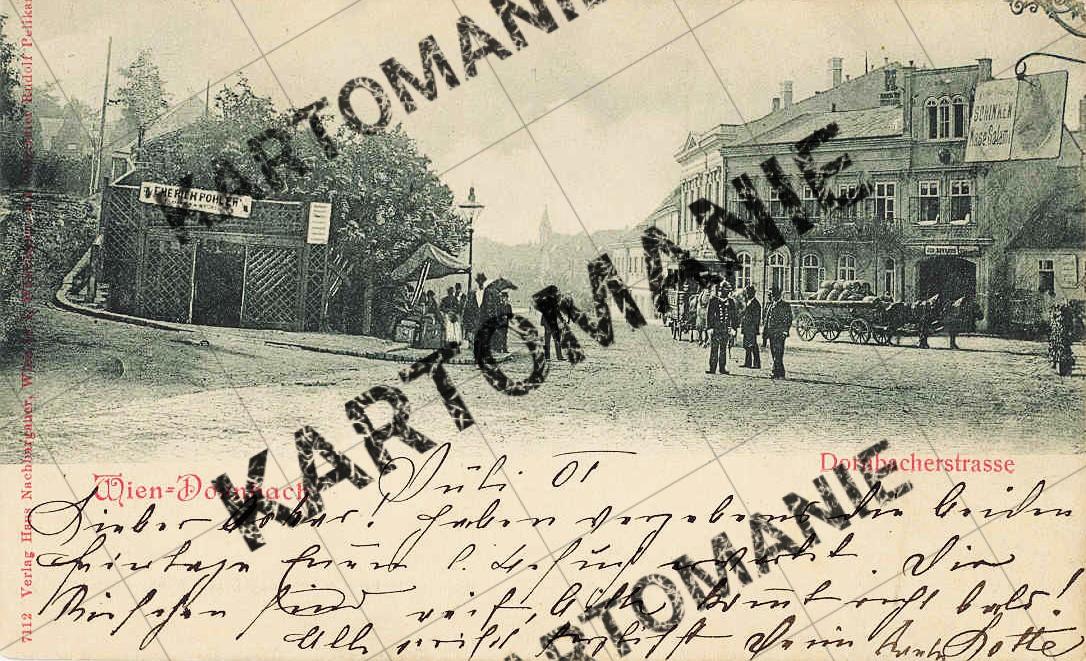 EMERICH POHLER
SCHINKEN
Käse Salami
7112 Verlag Hans Nachbargauer, Wien
Rudolf Pelikan
Wien-Dornbach
Dornbacherstrasse
Juli 01
Lieber Oskar! Haben vergebens die beiden
Feiertage Euren l. Besuch erwartet. Die
Kirschen sind reif, bitte kommt recht bald!
Alle grüßt herzlichst Deine Tante Lotte
KARTOMANIE
KARTOMANIE
KARTOMANIE
KARTOMANIE